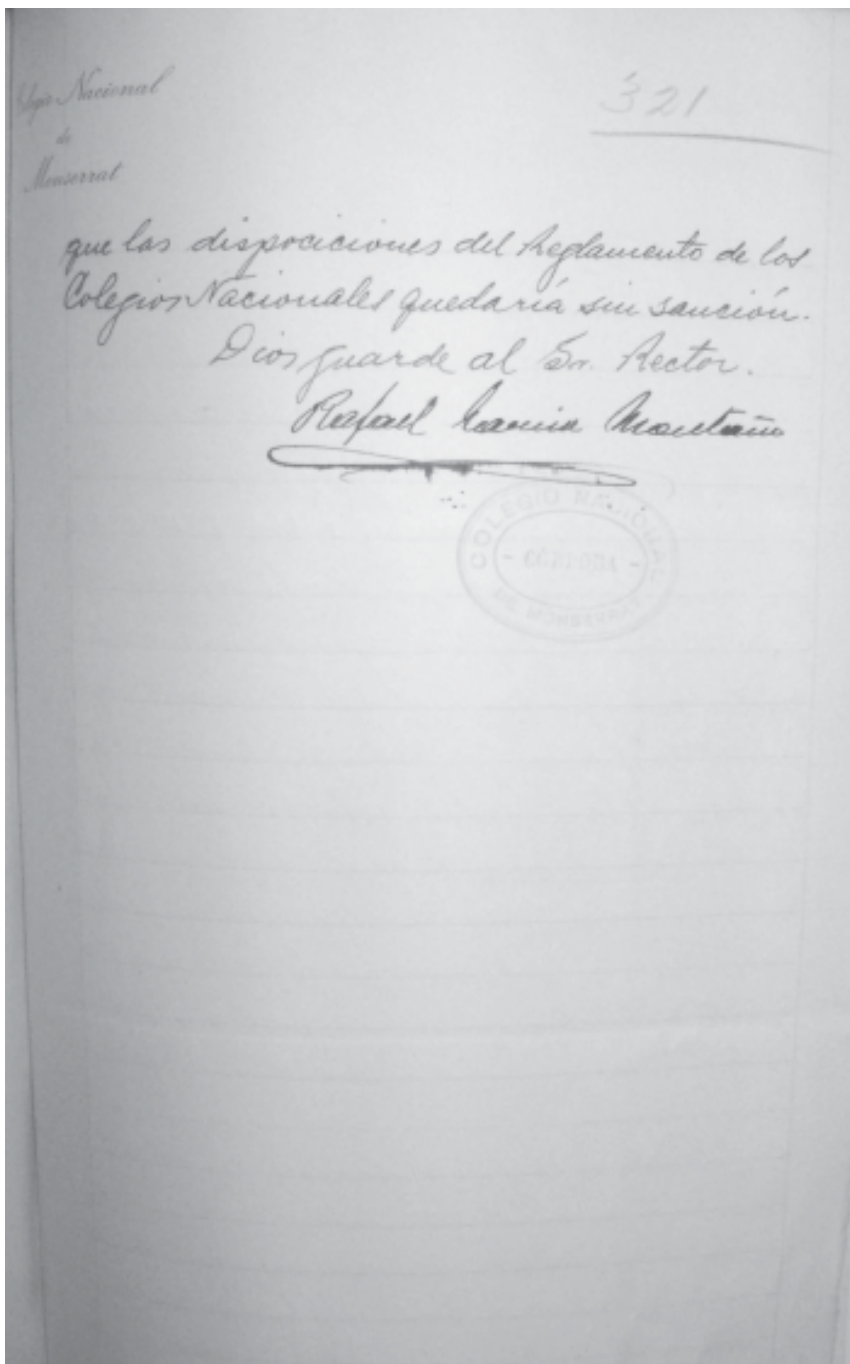 Colegio Nacional
de
Monserrat
321
que las disposiciones del Reglamento de los
Colegios Nacionales quedaría sin sanción.
Dios guarde al Sr. Rector.
Rafael Garcia Montaño
COLEGIO NACIONAL
- CORDOBA -
DE MONSERRAT